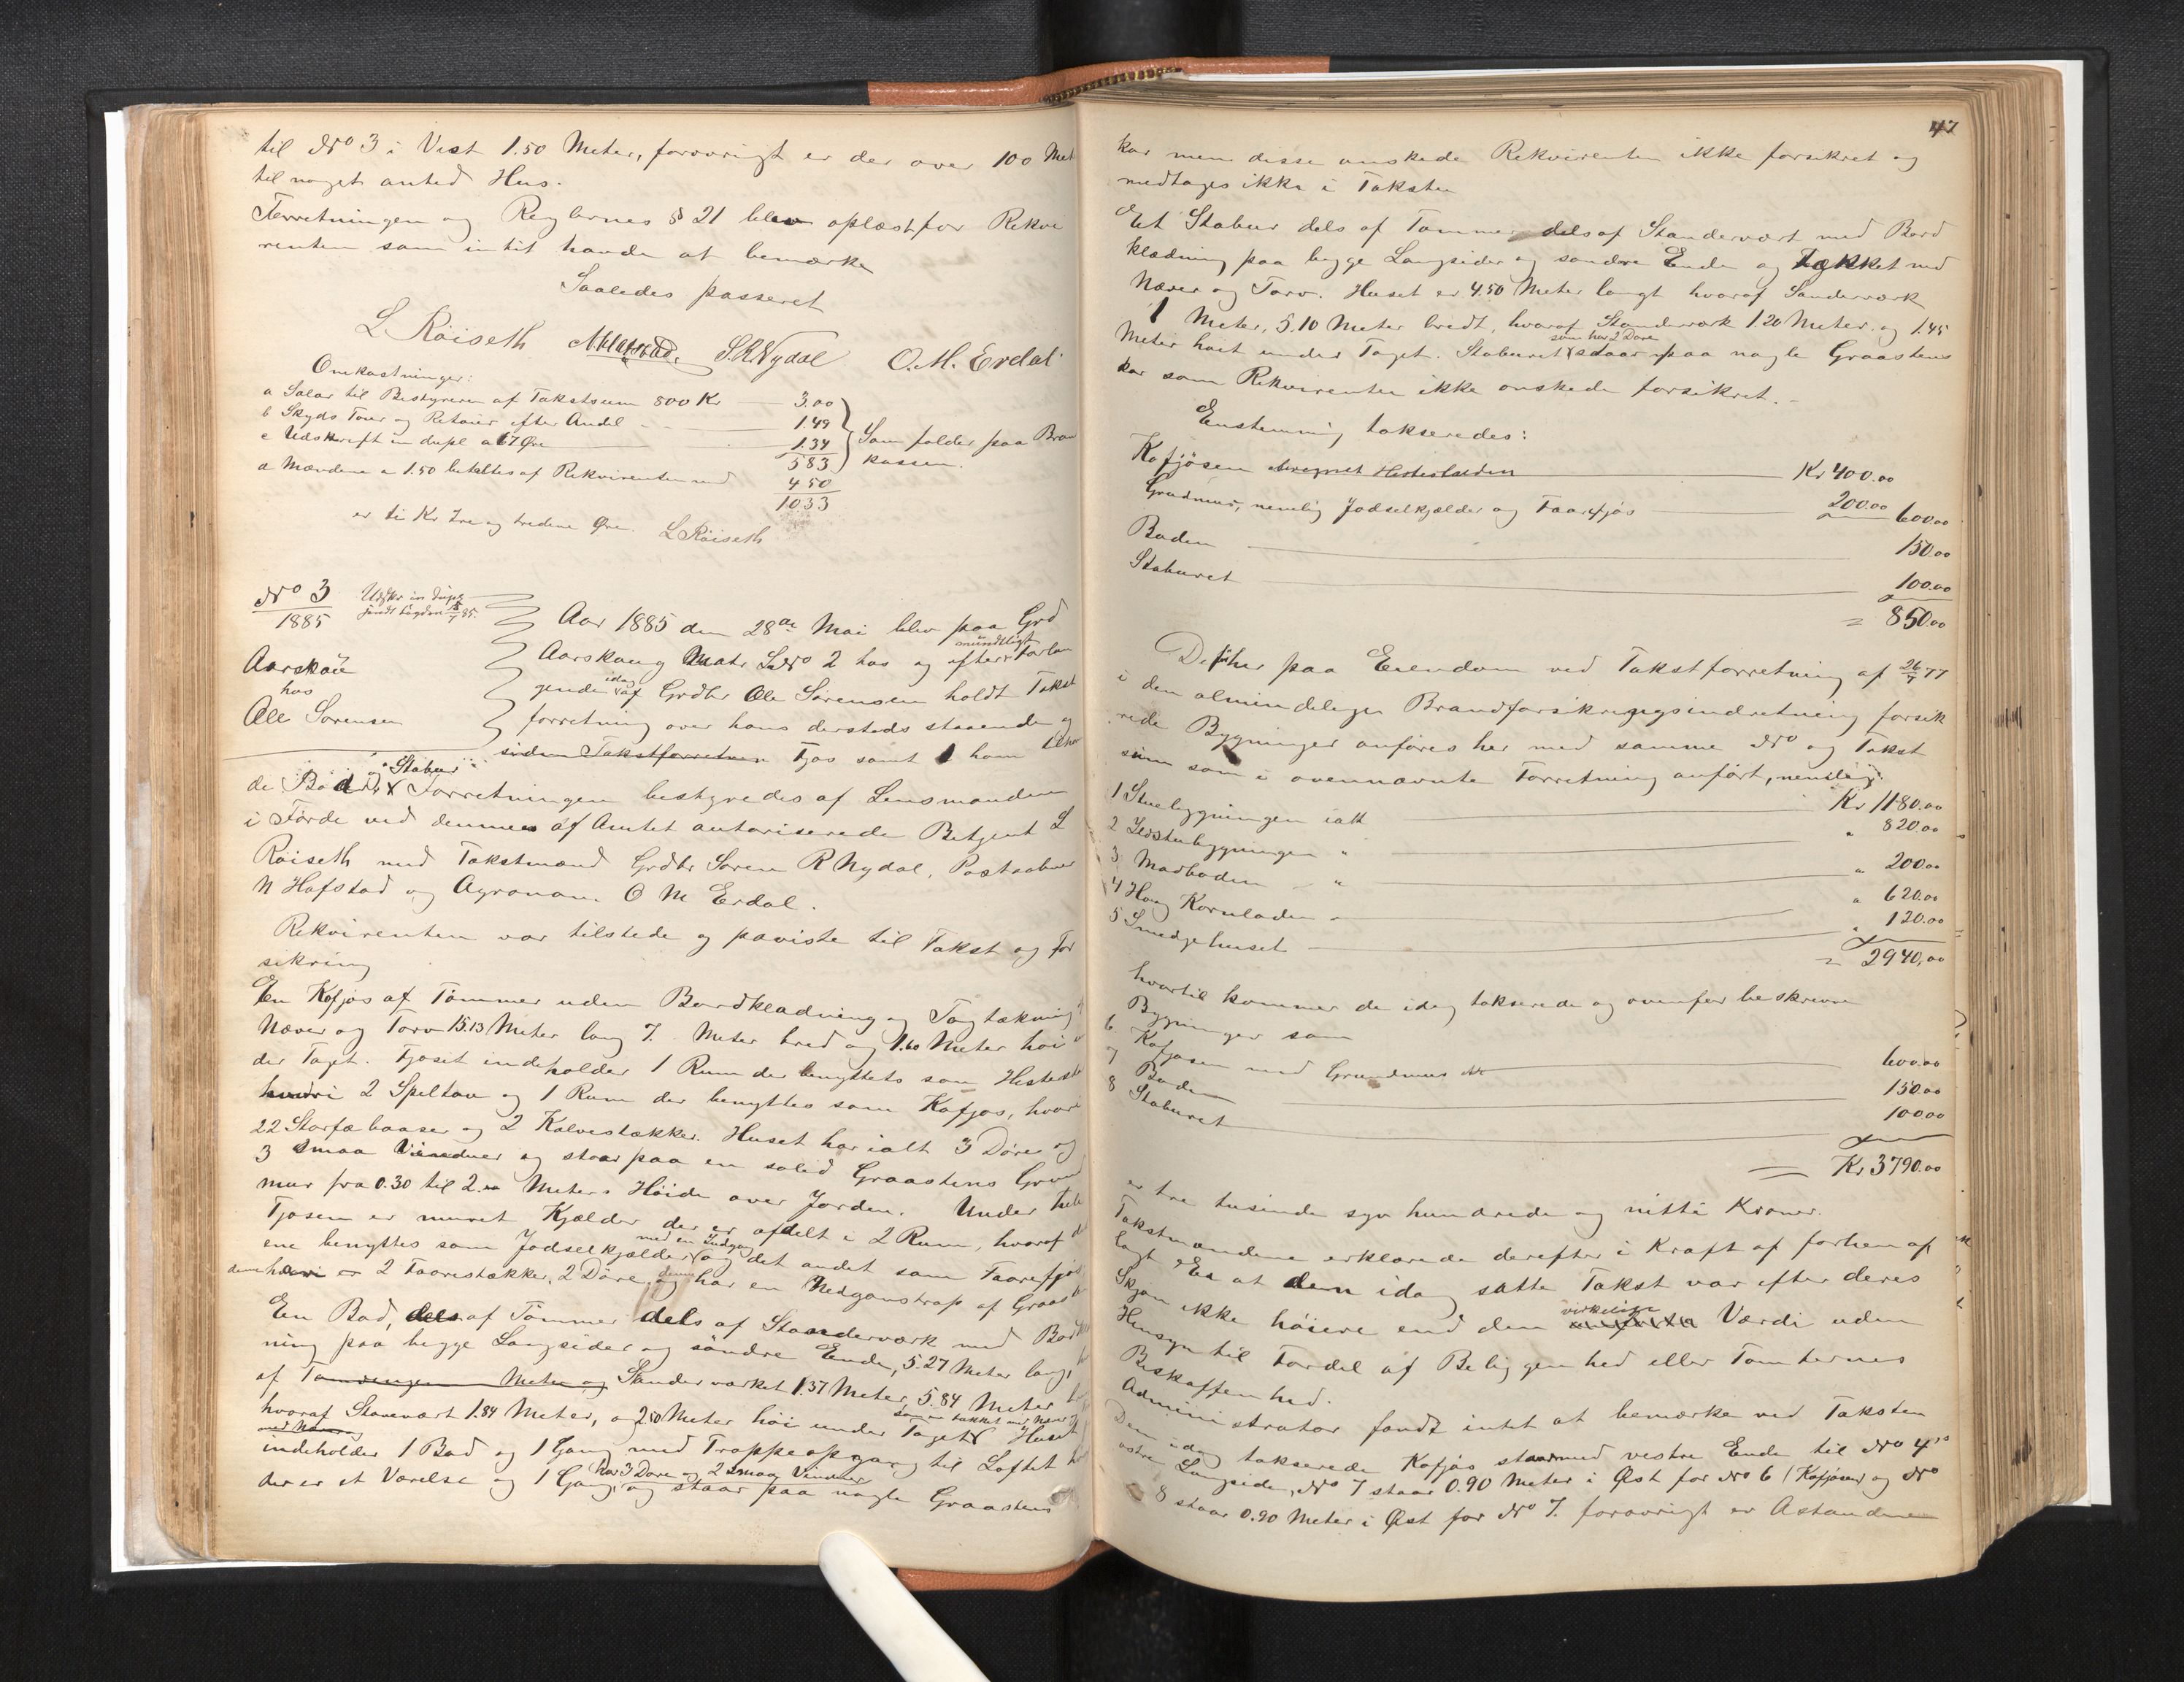 til No 3 i Vest 1.50 Meter, forøvrigt er der over 100 Met
til noget andet Hus.
Forretningen og Reglernes § 21 blev oplæst for Rekvi
renten som intet havde at bemærke
Saaledes passeret
L Röiseth S.R. Nydal O.M. Erdal
Omkostninger:
a Salar til Bestyreren af Takstsum 800 Kr 3.00
b Skyds Tour og Retour efter Andel 1.49
c Udskrift in dupl a 67 Øre 1.34
583
Som falder paa Bran
kassen.
d Mændene a 1.50 betaltes af Rekvirenten med 450
1033
er ti Kr tre og tredive Øre. L Röiseth
No 3
1885
Udskr in dupl
sendt Fogden 85.
Aarskou
hos
Ole Sørensen
Aar 1885 den 28de Mai blev paa Grd
Aarskoug Matr LNo 2 hos og efter mundtligt Forlan
gende idag af Grdbr Ole Sørensen holdt Takst
forretning over hans dersteds staaende og
siden Takstforretnin Fjøs samt 1 ham tilhø
de Bod og Stabur. Forretningen bestyredes af Lensmanden
i Førde ved dennes af Amtet autoriserede Betjent L
Röiseth med Takstmænd Grdbr Søren R Nydal, Postaabner
N Hafstad og Agronom O M Erdal.
Rekvirenten var tilstede og paaviste til Takst og For
sikring
En Kofjøs af Tømmer uden Bordklædning og Tagtækning
Næver og Torv 15.13 Meter lang 7. Meter bred og 1.60 Meter høi
der Taget. Fjøset indeholder 1 Rum der benyttets som Hestest
hvori 2 Speltau og 1 Rum der benyttes som Kofjøs, hvori
22 Storfæbaaser og 2 Kalvestækker. Huset har ialt 3 Døre og
3 smaa Vinduer og staar paa en solid Graastens Grund
mur fra 0.30 til 2.00 Meters Høide over Jorden. Under hele
Fjøsen er muret Kjælder der er afdelt i 2 Rum, hvoraf d
ene benyttes som Jødselkjælder med en Indgang og det andet som Faarefjøs
hvori er 2 Faarestækker, 2 Døre, og har en Nedganstrap af Graast
En Bod, dels af Tømmer dels af Standerværk med Bord
ning paa begge Langsider og søndre Ende, 5.27 Meter lang,
af Tømringen Meter og Standerværket 1.37 Meter, 5.84 Meter
hvoraf Staveværk 1.84 Meter, og 2.50 Meter høi under Taget som er tækket med Næver Huset
indeholder 1 Bod og 1 Gang med Trappeopgang til Loftet
der er et Værelse og 1 Gang, har 3 Døre og 2 smaa Vinduer og staar paa nogle Graastens
47
kar men disse ønskede Rekvirenten ikke forsikret og
medtages ikke i Taksten
Et Stabur dels af Tømmer dels af Standerværk med Bord
klædning paa begge Langsider og søndre Ende og tækket med
Næver og Torv. Huset er 4.50 Meter langt hvoraf Standerværk
1 Meter, 5.10 Meter bredt, hvoraf Standerværk 1.20 Meter og 1.45
Meter høit under Taget. Staburet som har 2 Døre staar paa nogle Graastens
kar som Rekvirenten ikke ønskede forsikret.
Eenstemmig takseredes:
Kofjøsen iberegnet Hestestalden Kr 400.00
Grudmur, nemlig Jødselkjælder og Faarefjøs 200.00 600.00
Boden 150.00
Staburet 100.00
= 850.00
De før her paa Eiendom ved Takstforretning af 26/7 77
i den almindelige Brandforsikringsindretning forsik
rede Bygninger anføres her med samme No og Takst
sum som i ovennævnte Forretning anført, nemlig:
1 Stuebygningen ialt Kr 1180.00
2 Ildstubygningen " " 820.00
3 Madboden " " 200.00
4 Høog Kornladen " 620.00
5 Smedjehuset " 120.00
= 2940,00
hvortil kommer de idag takserede og ovenfor beskrevne
Bygninger som
6 Kofjøsen med Grundmur 600.00
7 Boden 150.00
8 Staburet 100.00
= Kr 3790.00
er tre tusinde syv hundrede og nitti Kroner.
Takstmændene erklærede derefter i Kraft af forhen af
lagt Ed at den idag satte Takst var efter deres
Skjøn ikke høiere end den virkelige Værdi uden
Hensyn til Fordel af Beliggenhed eller Tomternes
Beskaffenhed.
Administrator fandt intet at bemærke ved Taksten
Den idag takserede Kofjøs staar med vestre Ende til No 4's
østre Langside, No 7 staar 0.90 Meter i Øst for No 6 (Kofjøsen) og No
8 staar 0.90 Meter i Øst for No 7. forøvrigt er Astandene